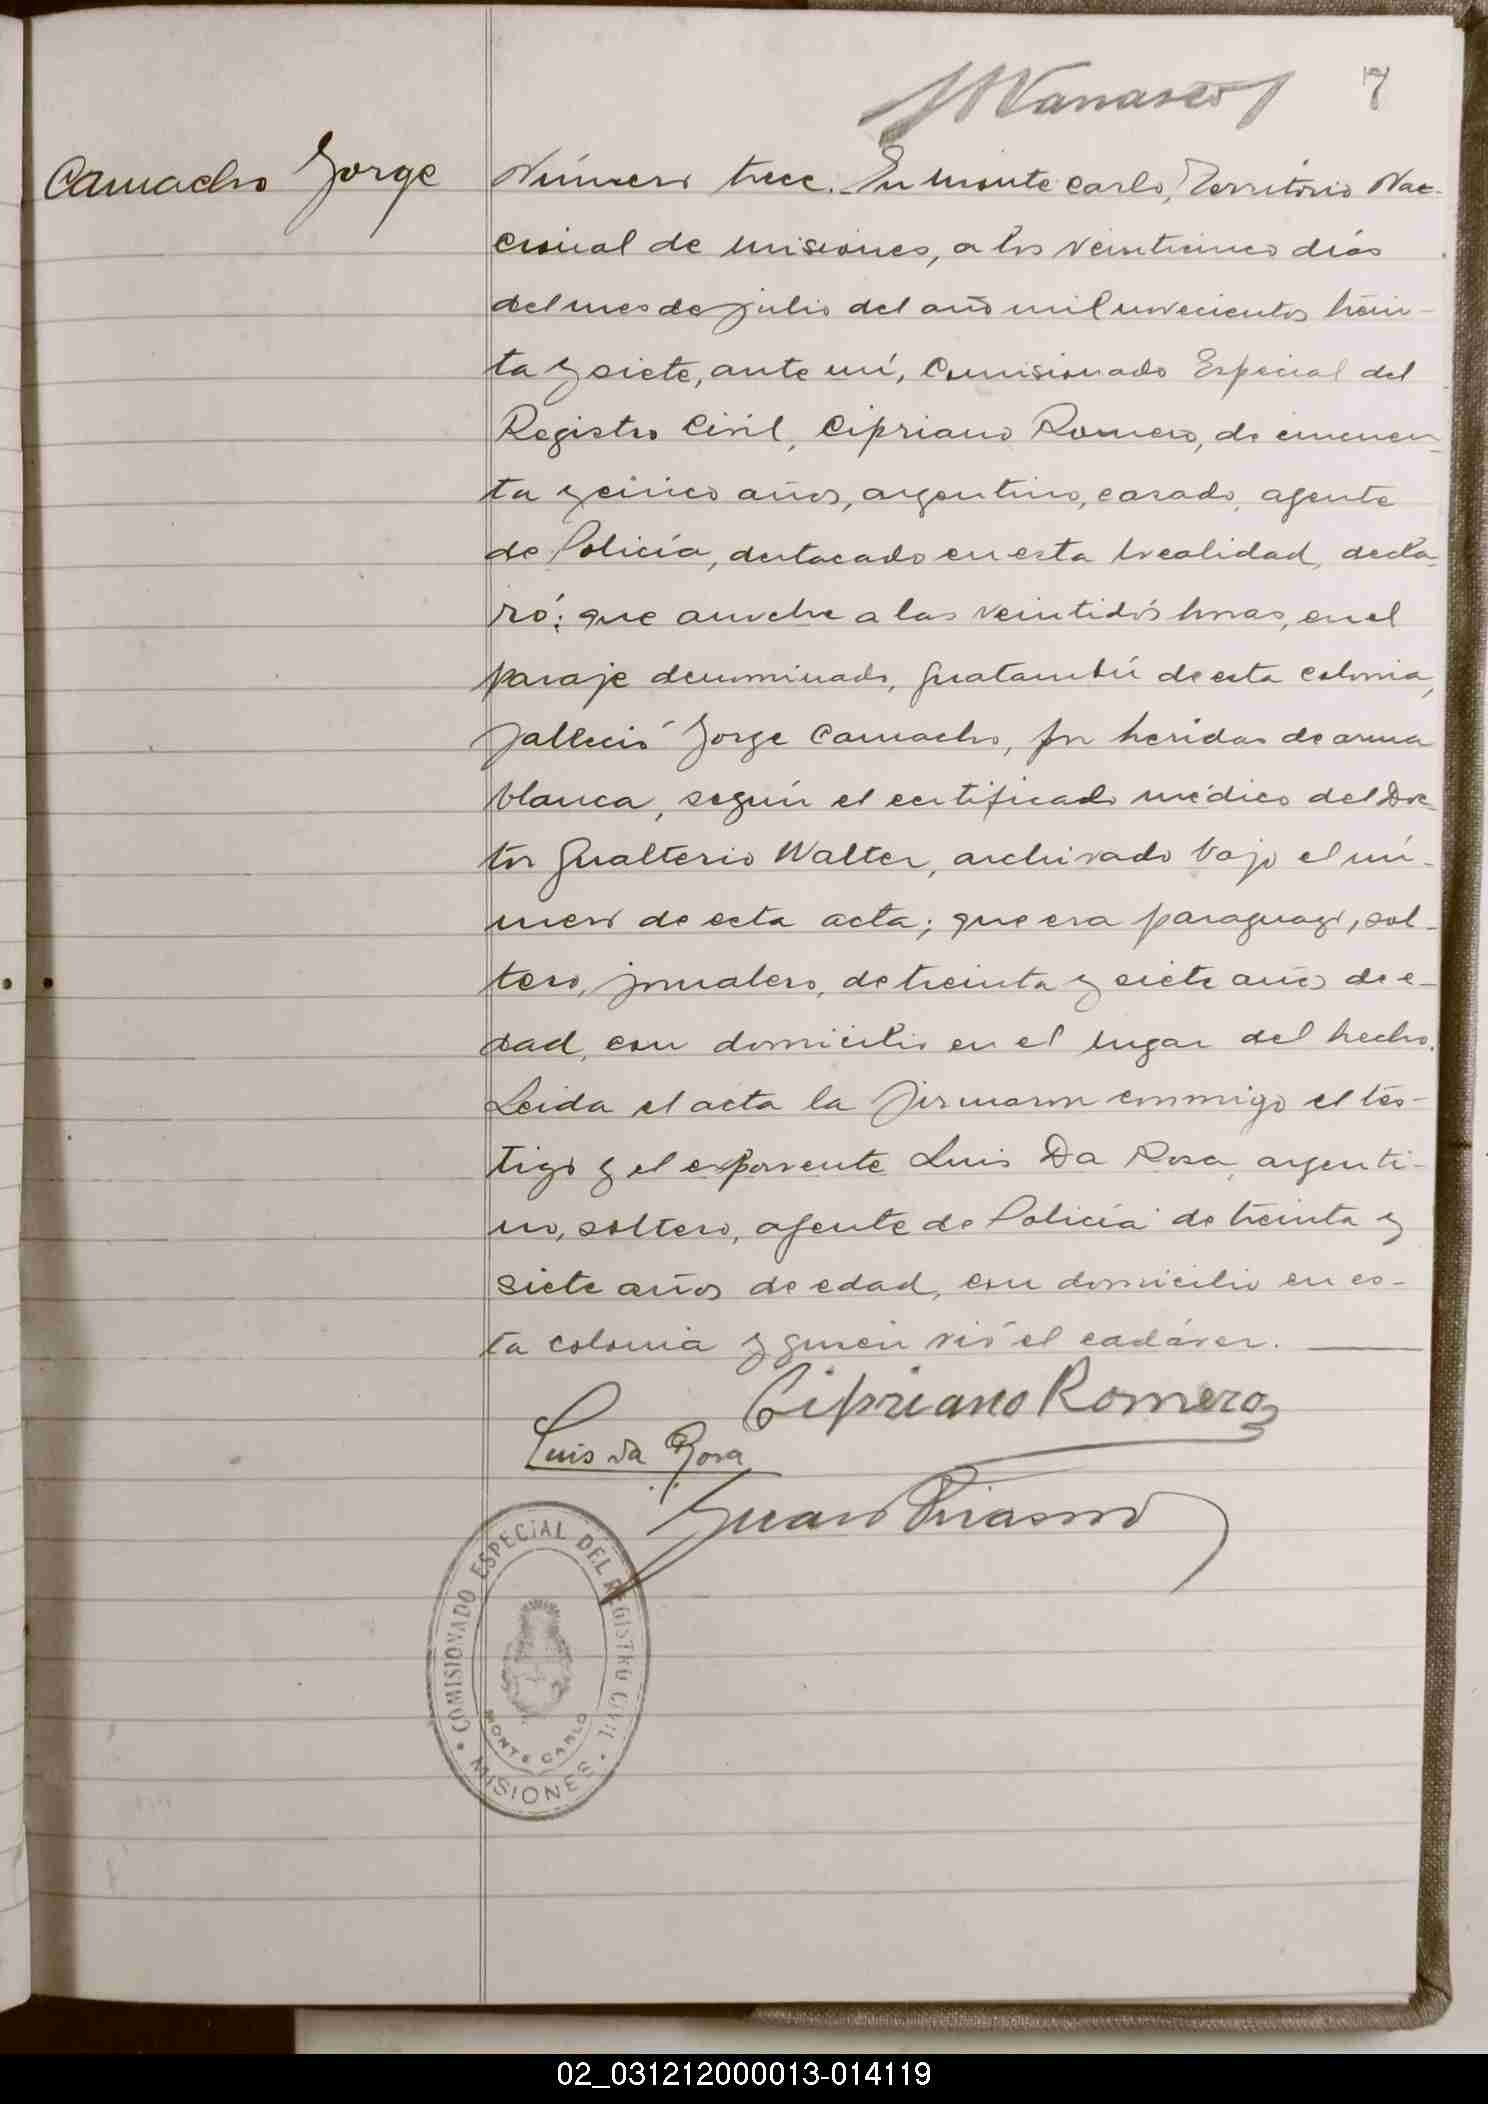 7
Camacho Jorge
Número trece. En Monte Carlo, Territorio Na-
cional de Misiones, a los veinticinco dias
del mes de julio del año mil novecientos trein-
ta y siete, ante mí, Comisionado Especial del
Registro Civil, Cipriano Romero, de cincuen-
ta y cinco años, argentino, casado, agente
de Policía, destacado en esta localidad, decla-
ró: que anoche a las veintidós horas, en el
paraje denominado, Guatambú de esta colonia,
falleció Jorge Camacho, por heridas de arma
blanca, según el certificado médico del Doc-
tor Gualterio Walter, archivado bajo el nú-
mero de esta acta; que era paraguayo, sol-
tero, jornalero, de treinta y siete años de e-
dad, con domicilio en el lugar del hecho.
Leida el acta la firmaron conmigo el tes-
tigo y el exponente Luis Da Rosa, argenti-
no, soltero, agente de Policía de treinta y
siete años de edad, con domicilio en es-
ta colonia y quien vió el cadáver.
Cipriano Romero
Luis da Rosa
COMISIONADO ESPECIAL DEL REGISTRO CIVIL
MONTE CARLO
MISIONES
02_031212000013-014119